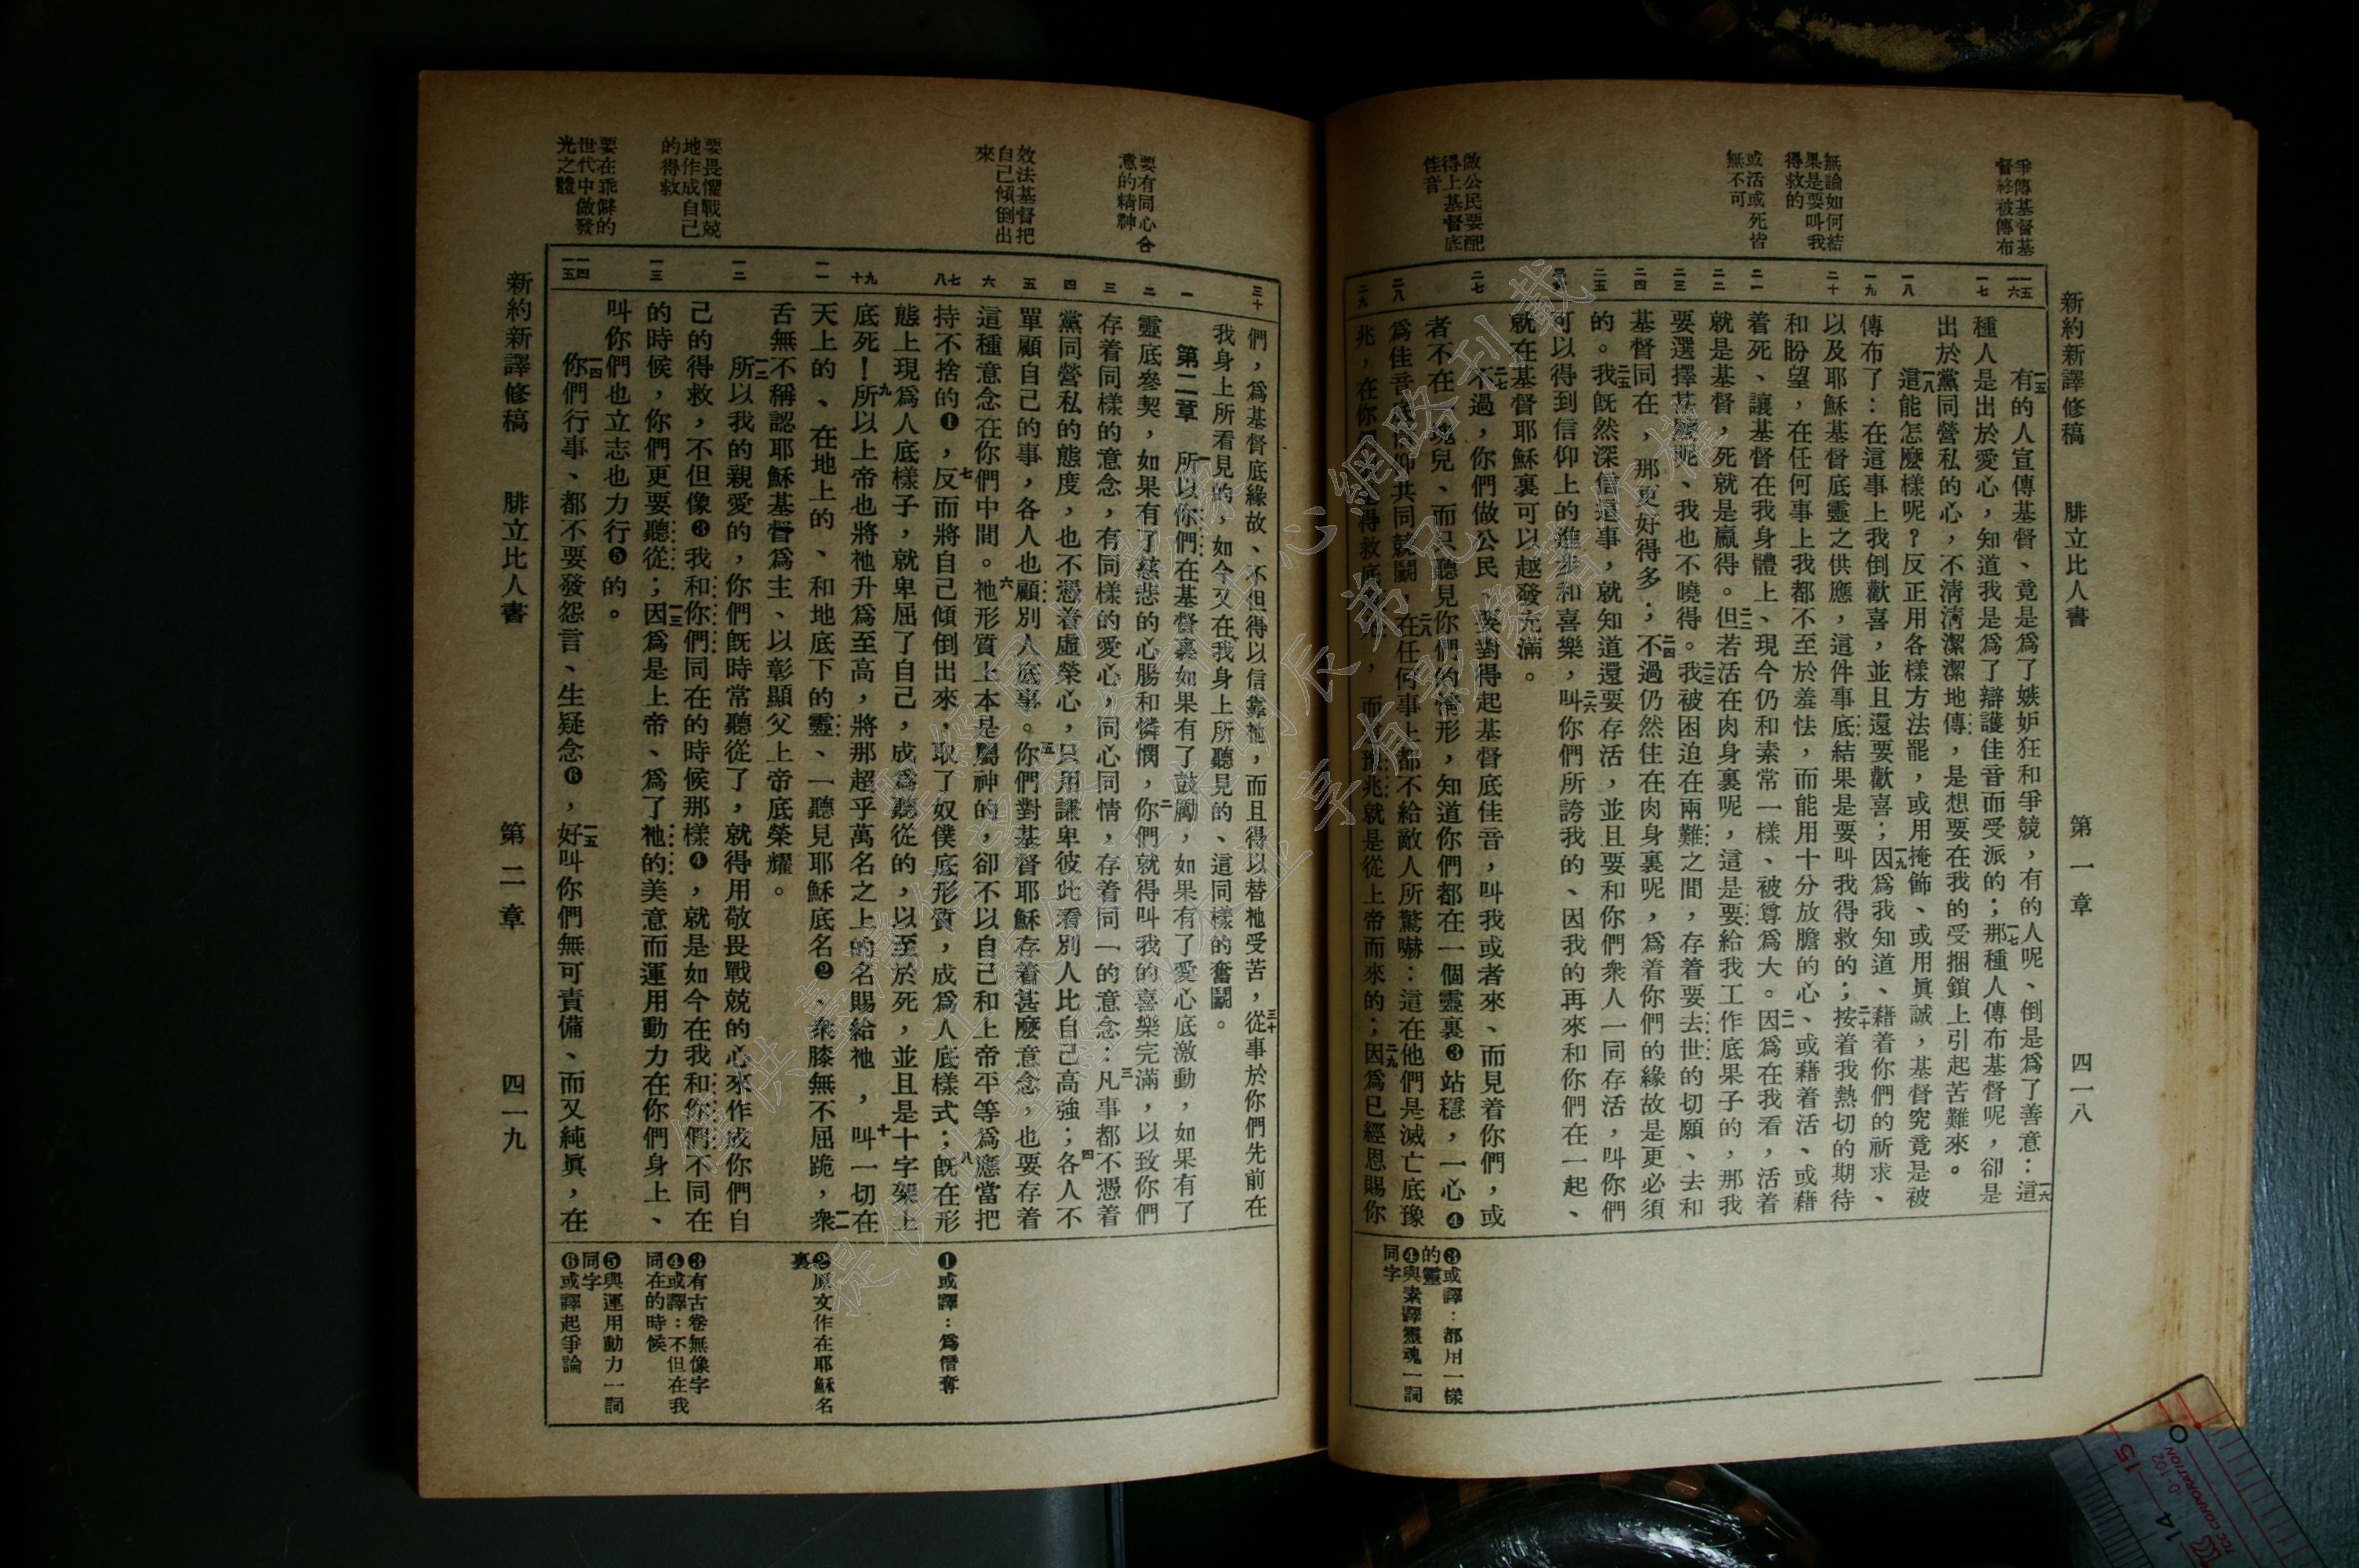 新約新譯修稿　腓立比人書　第一章　四一八
爭傳基督基
督終被傳布
無論如何結
果是要叫我
得救的
或活或死皆
無不可
做公民要配
得上基督底
佳音
一五有的人宣傳基督、竟是爲了嫉妒狂和爭競，有的人呢、倒是爲了善意：一六這
種人是出於愛心，知道我是爲了辯護佳音而受派的；一七那種人傳布基督呢，卻是
出於黨同營私的心，不清清潔潔地傳，是想要在我的受捆鎖上引起苦難來。
一八這能怎麼樣呢？反正用各樣方法罷，或用掩飾、或用眞誠，基督究竟是被
傳布了：在這事上我倒歡喜，並且還要歡喜；一九因爲我知道、藉着你們的祈求、
以及耶穌基督底靈之供應，這件事底結果是要叫我得救的；二十按着我熱切的期待
和盼望，在任何事上我都不至於羞怯，而能用十分放膽的心、或藉着活、或藉
着死、讓基督在我身體上、現今仍和素常一樣、被尊爲大。二一因爲在我看，活着
就是基督，死就是贏得。二二但若活在肉身裏呢，這是要給我工作底果子的，那我
要選擇甚麼呢、我也不曉得。二三我被困迫在兩難之間，存着要去世的切願、去和
基督同在，那更好得多；二四不過仍然住在肉身裏呢，爲着你們的緣故是更必須
的。二五我旣然深信這事，就知道還要存活，並且要和你們衆人一同存活，叫你們
可以得到信仰上的進步和喜樂，二六叫你們所誇我的、因我的再來和你們在一起、
就在基督耶穌裏可以越發充滿。
二七不過，你們做公民，要對得起基督底佳音，叫我或者來、而見着你們，或
者不在塊兒、而只聽見你們的情形，知道你們都在一個靈裏❸站穩，一心❹
爲佳音底信仰共同競鬭，二八在任何事上都不給敵人所驚嚇：這在他們是滅亡底豫
兆，在你們得救底，而豫兆就是從上帝而來的；二九因爲已經恩賜你
❸或譯：都用一樣
的靈
❹與素譯靈魂一詞
同字
要有同心合
意的精神
效法基督把
自己傾倒出
來
要畏懼戰兢
地作成自己
的得救
要在乖僻的
世代中做發
光之體
們，爲基督底緣故、不但得以信靠祂，而且得以替祂受苦，三十從事於你們先前在
我身上所看見的，如今又在我身上所聽見的、這同樣的奮鬭。
第二章　一所以你們在基督裏如果有了鼓勵，如果有了愛心底激動，如果有了
靈底參契，如果有了慈悲的心腸和憐憫，二你們就得叫我的喜樂完滿，以致你們
存着同樣的意念，有同樣的愛心，同心同情，存着同一的意念：三凡事都不憑着
黨同營私的態度，也不憑着虛榮心，只用謙卑彼此看別人比自己高強；四各人不
單顧自己的事，各人也顧別人底事。五你們對基督耶穌存着甚麼意念，也要存着
這種意念在你們中間。六祂形質上本是屬神的，卻不以自己和上帝平等爲應當把
持不捨的❶，七反而將自己傾倒出來，取了奴僕底形質，成爲人底樣式；八旣在形
態上現爲人底樣子，就卑屈了自己，成爲聽從的，以至於死，並且是十字架上
底死！九所以上帝也將祂升爲至高，將那超乎萬名之上的名賜給祂，十叫一切在
天上的、在地上的、和地底下的靈、一聽見耶穌底名❷、衆膝無不屈跪，一一衆
舌無不稱認耶穌基督爲主、以彰顯父上帝底榮耀。
一二所以我的親愛的，你們旣時常聽從了，就得用敬畏戰兢的心來作成你們自
己的得救，不但像❸我和你們同在的時候那樣❹，就是如今在我和你們不同在
的時候，你們更要聽從；一三因爲是上帝、爲了祂的美意而運用動力在你們身上、
叫你們也立志也力行❺的。
一四你們行事、都不要發怨言、生疑念❻，一五好叫你們無可責備、而又純眞，在
❶或譯：爲僭奪
❷原文作在耶穌名
裏
❸有古卷無像字
❹或譯：不但在我
同在的時候
❺與運用動力一詞
同字
❻或譯起爭論
新約新譯修稿　腓立比人書　第二章　四一九